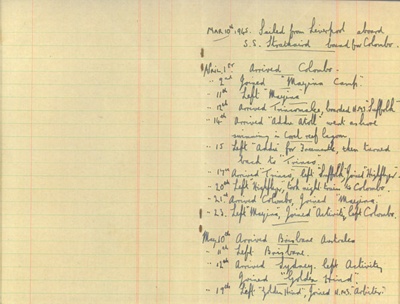 MAR 10th 1945. Sailed from Liverpool aboard
S.S. Strathaird bound for Colombo.
April 1st Arrived Colombo.
" 2nd Joined "Mayina Camp"
" 11th Left Mayina
" 12th Arrived Trincomalee, boarded HMS "Suffolk"
" 14th Arrived "Addu Atoll" went ashore
swimming in Coral reef lagoon.
" 15 Left "Addu" for then turned
back to "Trinco"
" 17th Arrived Trinco, left "Suffolk", Joined "Highflyer"
" 20th Left Highflyer, took night train to Colombo.
" 21st Arrived Colombo, Joined Mayina.
" 23. Left "Mayina", Joined "Activity", left Colombo.
May 10th Arrived Brisbane Australia
" 11th Left Brisbane.
" 12th Arrived Sydney. left Activity
Joined "Golden Hind".
" 19th Left "Golden Hind", Joined H.M.S. "Arbiter"